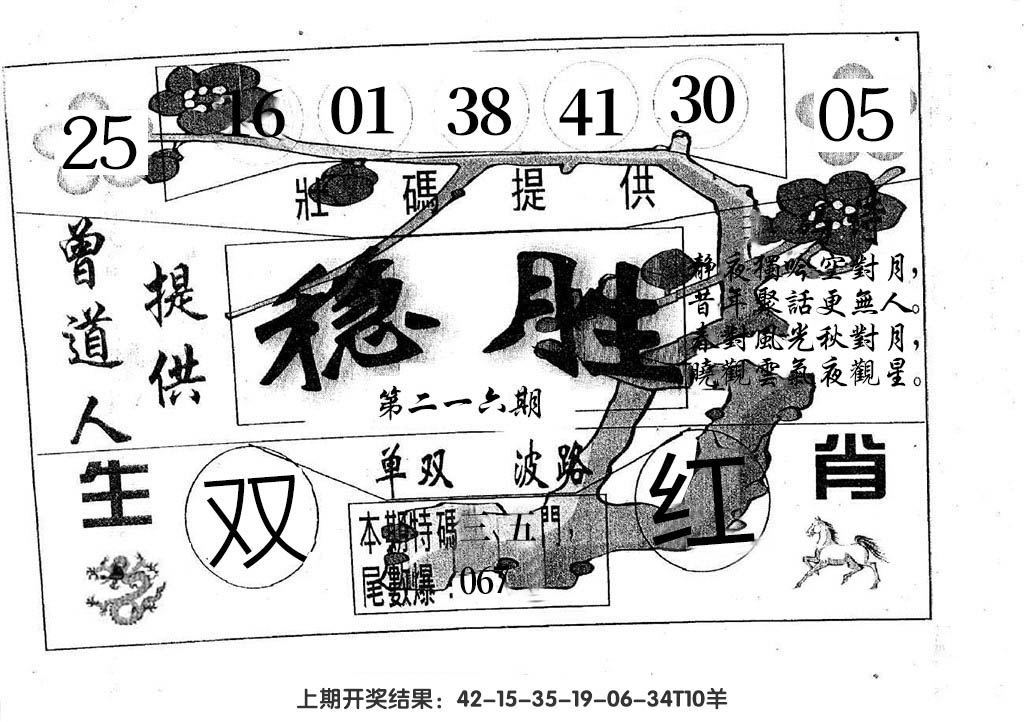 25 16 01 38 41 30 05
壯碼提供
曾道人
提供
稳胜
第二一六期
静夜獨吟空對月，
昔年聚話更無人。
春對風光秋對月，
曉觀雲氣夜觀星。
单双 波路
生肖
双
红
本期特碼三、五門，
尾數爆：067
上期开奖结果：42-15-35-19-06-34T10羊